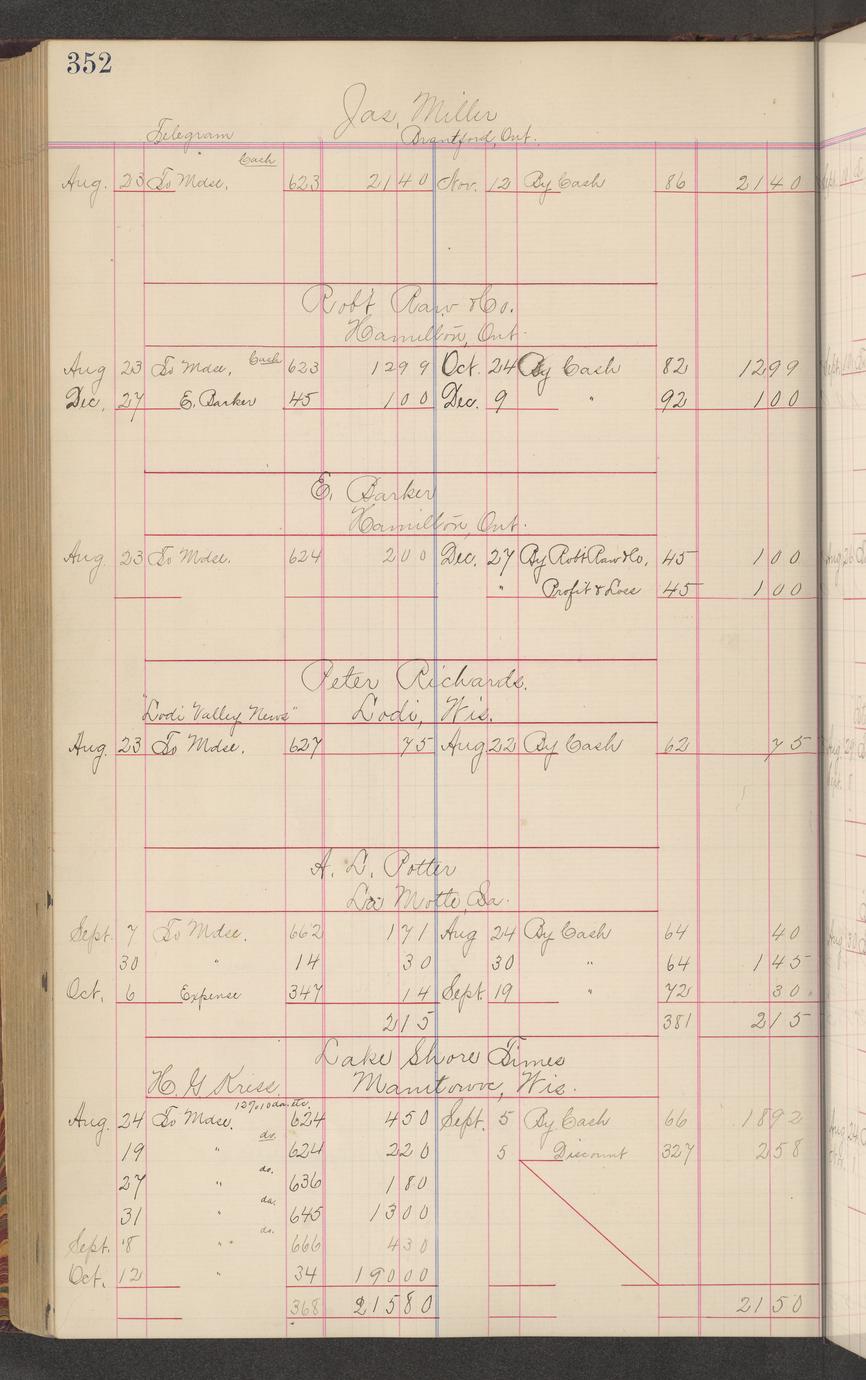 352
Jas. Miller
Telegram Brantford, Ont.
Cash
Aug. 23 To Mdse. 623 21 40 Nov. 12 By Cash 86 21 40
Robt Raw & Co.
Hamilton, Ont.
Aug 23 To Mdse, Cash 623 12 99 Oct. 24 By Cash 82 12 99
Dec. 27 E. Barker 45 1 00 Dec. 9 " 92 1 00
E. Barker
Hamilton, Ont.
Aug. 23 To Mdse. 624 2 00 Dec. 27 By Robt Raw & Co, 45 1 00
" Profit & Loss 45 1 00
Peter Richards.
"Lodi Valley News" Lodi, Wis.
Aug. 23 To Mdse. 627 75 Aug 22 By Cash 62 75
A. L. Potter
La Motte, Ia.
Sept. 7 To Mdse. 662 1 71 Aug 24 By Cash 64 40
30 " 14 30 30 " 64 1 45
Oct. 6 Expense 347 14 Sept. 19 " 72 30
2 15 381 2 15
Lake Shore Times
H. G. Kriss. Manitowoc, Wis.
Aug. 24 To Mdse. 12% 10 da. etc. 624 4 50 Sept. 5 By Cash 66 18 92
19 " do. 624 2 20 5 Discount 327 2 58
27 " do. 636 1 80
31 " do. 645 13 00
Sept. 8 " " do. 666 4 30
Oct. 12 " 34 190 00
368 215 80 21 50